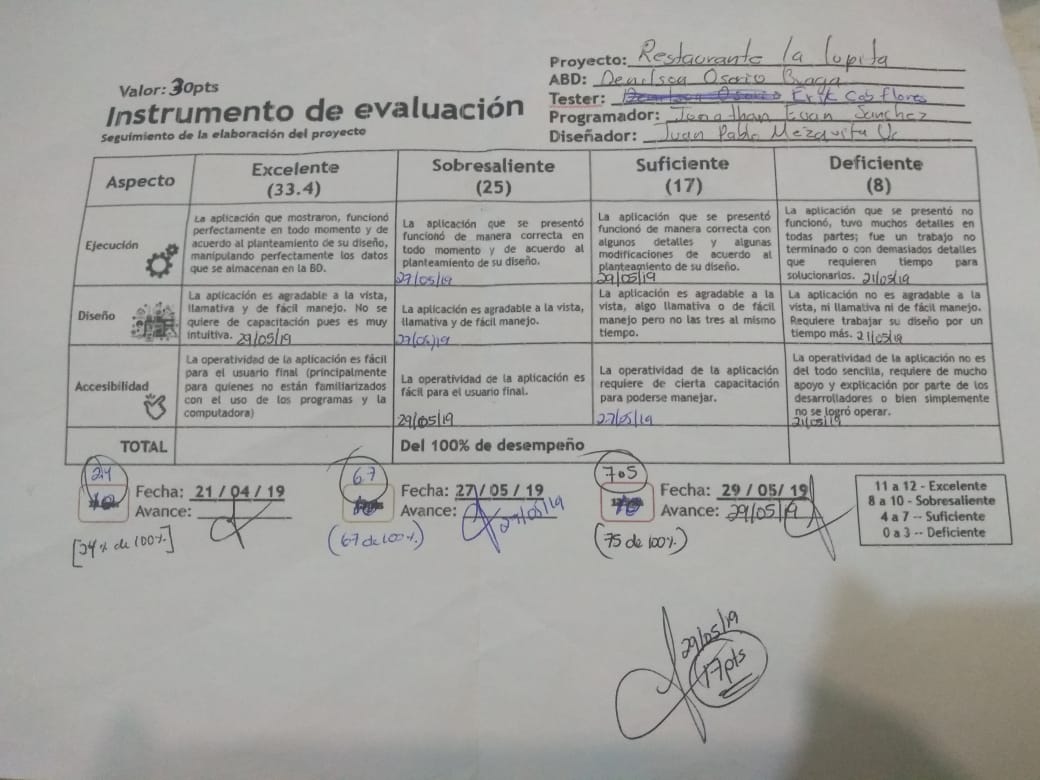 Valor: 30pts
Instrumento de evaluación
Seguimiento de la elaboración del proyecto
Proyecto: Restaurante la lupita
ABD: Denilson Osorio Braga
Tester: Denilson Osorio Erik Cob flores
Programador: Jonathan Euan Sanchez
Diseñador: Juan Pablo Mezquita Uc
Aspecto
Excelente
(33.4)
Sobresaliente
(25)
Suficiente
(17)
Deficiente
(8)
Ejecución
La aplicación que mostraron, funcionó
perfectamente en todo momento y de
acuerdo al planteamiento de su diseño,
manipulando perfectamente los datos
que se almacenan en la BD.
La aplicación que se presentó
funcionó de manera correcta en
todo momento y de acuerdo al
planteamiento de su diseño.
27/05/19
La aplicación que se presentó
funcionó de manera correcta con
algunos detalles y algunas
modificaciones de acuerdo al
planteamiento de su diseño.
29/05/19
La aplicación que se presentó no
funcionó, tuvo muchos detalles en
todas partes; fue un trabajo no
terminado o con demasiados detalles
que requieren tiempo para
solucionarlos. 21/05/19
Diseño
La aplicación es agradable a la vista,
llamativa y de fácil manejo. No se
quiere de capacitación pues es muy
intuitiva. 29/05/19
La aplicación es agradable a la vista,
llamativa y de fácil manejo.
27/05/19
La aplicación es agradable a la
vista, algo llamativa o de fácil
manejo pero no las tres al mismo
tiempo.
La aplicación no es agradable a la
vista, ni llamativa ni de fácil manejo.
Requiere trabajar su diseño por un
tiempo más. 21/05/19
Accesibilidad
La operatividad de la aplicación es fácil
para el usuario final (principalmente
para quienes no están familiarizados
con el uso de los programas y la
computadora)
La operatividad de la aplicación es
fácil para el usuario final.
29/05/19
La operatividad de la aplicación
requiere de cierta capacitación
para poderse manejar.
27/05/19
La operatividad de la aplicación no es
del todo sencilla, requiere de mucho
apoyo y explicación por parte de los
desarrolladores o bien simplemente
no se logró operar.
21/05/19
TOTAL
Del 100% de desempeño
2.4
Fecha: 21 / 04 / 19
Avance:
[24% de 100%]
6.7
Fecha: 27 / 05 / 19
Avance: 27/05/19
(67 de 100%)
7.5
Fecha: 29 / 05/ 19
Avance: 29/05/19
(75 de 100%)
11 a 12 - Excelente
8 a 10 - Sobresaliente
4 a 7 -- Suficiente
0 a 3 -- Deficiente
29/05/19
17pts